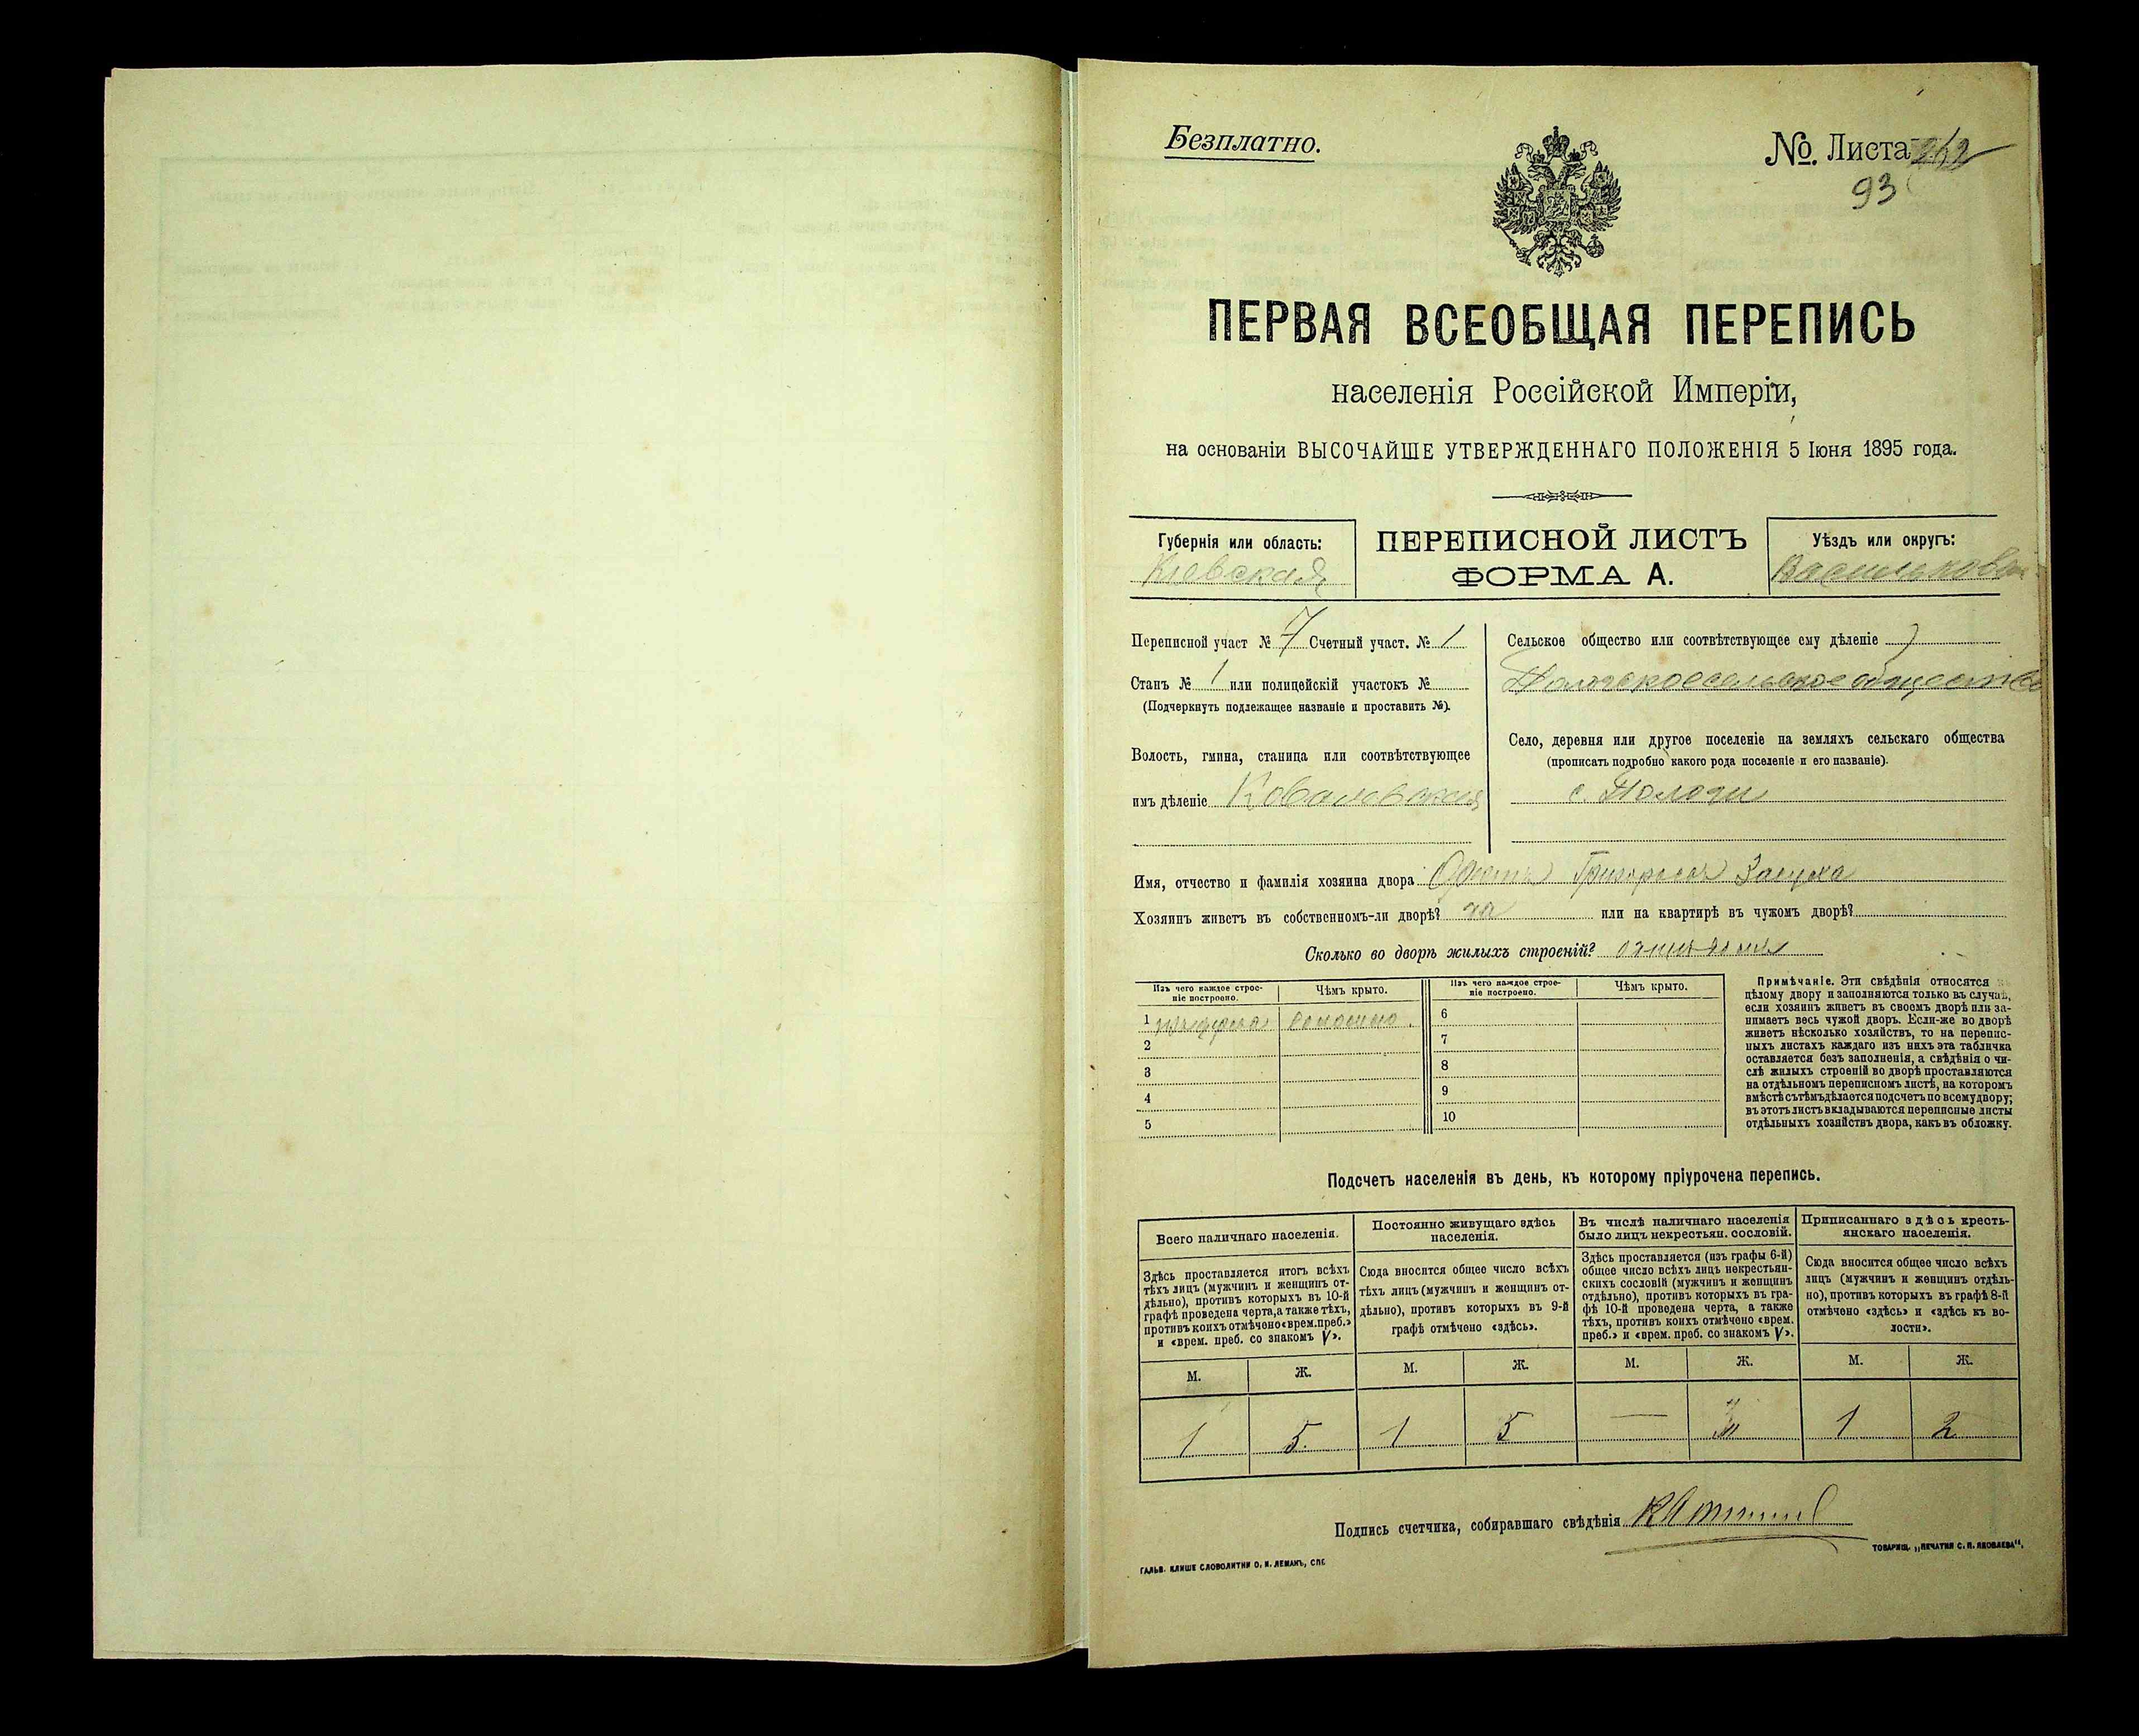 Безплатно.
№. Листа 262
93
ПЕРВАЯ ВСЕОБЩАЯ ПЕРЕПИСЬ
населенія Россійской Имперіи,
на основаніи ВЫСОЧАЙШЕ УТВЕРЖДЕННАГО ПОЛОЖЕНІЯ 5 Іюня 1895 года.
Губернія или область:
Кіевская
ПЕРЕПИСНОЙ ЛИСТЪ
ФОРМА А.
Уѣздъ или округъ:
Васильков
Переписной участ № 7 Счетный участ. № 1
Станъ № 1 или полицейскій участокъ №
(Подчеркнуть подлежащее названіе и проставить №).
Волость, гмина, станица или соотвѣтствующее
имъ дѣленіе Ковалевская
Сельское общество или соотвѣтствующее ему дѣленіе
сельское общество
Село, деревня или другое поселеніе на земляхъ сельскаго общества
(прописать подробно какого рода поселеніе и его названіе).
с. Пологи
Имя, отчество и фамилія хозяина двора Григорьевъ
Хозяинъ живетъ въ собственномъ-ли дворѣ? или на квартирѣ въ чужомъ дворѣ?
Сколько во дворѣ жилыхъ строеній?
Изъ чего каждое строе-
ніе построено.
Чѣмъ крыто.
Изъ чего каждое строе-
ніе построено.
Чѣмъ крыто.
1 соломою
2
3
4
5
6
7
8
9
10
Примѣчаніе. Эти свѣдѣнія относятся
цѣлому двору и заполняются только въ случаѣ,
если хозяинъ живетъ въ своемъ дворѣ или за-
нимаетъ весь чужой дворъ. Если-же во дворѣ
живетъ нѣсколько хозяйствъ, то на перепис-
ныхъ листахъ каждаго изъ нихъ эта табличка
оставляется безъ заполненія, а свѣдѣнія о чи-
слѣ жилыхъ строеній во дворѣ проставляются
на отдѣльномъ переписномъ листѣ, на которомъ
вмѣстѣ съ тѣмъ дѣлается подсчетъ по всему двору;
въ этотъ листъ вкладываются переписные листы
отдѣльныхъ хозяйствъ двора, какъ въ обложку.
Подсчетъ населенія въ день, къ которому пріурочена перепись.
Всего наличнаго населенія.
Здѣсь проставляется итогъ всѣхъ
тѣхъ лицъ (мужчинъ и женщинъ от-
дѣльно), противъ которыхъ въ 10-й
графѣ проведена черта, а также тѣхъ,
противъ коихъ отмѣчено «врем. преб.»
и «врем. преб. со знакомъ V».
Постоянно живущаго здѣсь
населенія.
Сюда вносится общее число всѣхъ
тѣхъ лицъ (мужчинъ и женщинъ от-
дѣльно), противъ которыхъ въ 9-й
графѣ отмѣчено «здѣсь».
Въ числѣ наличнаго населенія
было лицъ некрестьян. сословій.
Здѣсь проставляется (изъ графы 6-й)
общее число всѣхъ лицъ некрестьян-
скихъ сословій (мужчинъ и женщинъ
отдѣльно), противъ которыхъ въ гра-
фѣ 10-й проведена черта, а также
тѣхъ, противъ коихъ отмѣчено «врем.
преб.» и «врем. преб. со знакомъ V».
Приписаннаго здѣсь кресть-
янскаго населенія.
Сюда вносится общее число всѣхъ
лицъ (мужчинъ и женщинъ отдѣль-
но), противъ которыхъ въ графѣ 8-й
отмѣчено «здѣсь» и «здѣсь къ во-
лости».
М. Ж. М. Ж. М. Ж. М. Ж.
1 5 1 5 — 3 1 2
Подпись счетчика, собиравшаго свѣдѣнія
ГАЛЬВ. КЛИШЕ СЛОВОЛИТНИ О. И. ЛЕМАНЪ, СПБ
ТОВАРИЩ. „ПЕЧАТНЯ С. П. ЯКОВЛЕВА“.